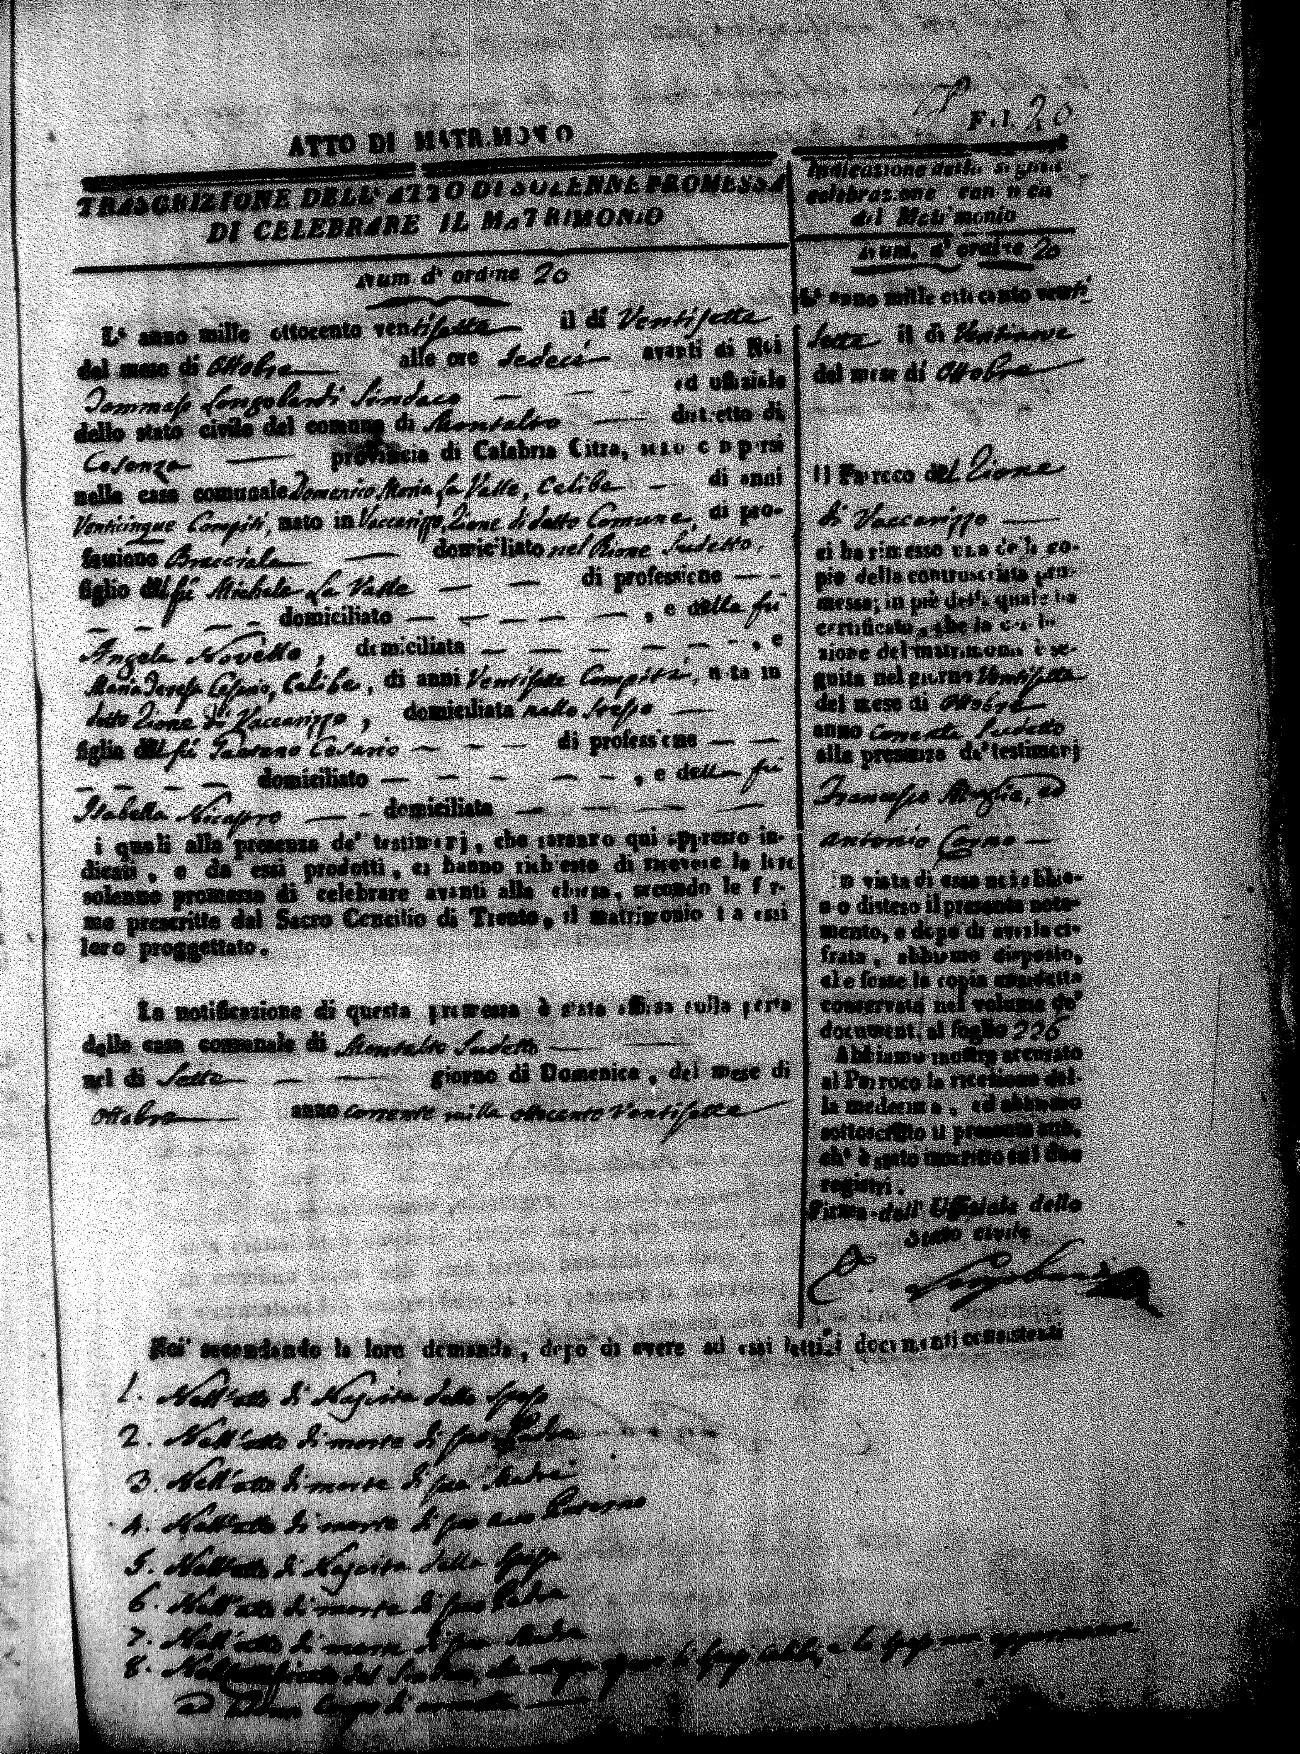 Fol. 20
ATTO DI MATRIMONIO
TRASCRIZIONE DELL'ATTO DI SOLENNE PROMESSA
DI CELEBRARE IL MATRIMONIO
Num d'ordine 20
L' anno mille ottocento ventisette il di Ventisette
del mese di Ottobre alle ore Sedeci avanti di Noi
Tommaso Longobardi Sindaco ed uffiziale
dello stato civile del comune di Montalto distretto di
Cosenza provincia di Calabria Citra, sono comparsi
nella casa comunale Domenico Maria La Valle, Celibe di anni
Venticinque Compiti, nato in Vaccarizzo, Rione di detto Comune, di pro-
fessione Bracciale domiciliato nel Rione Sudetto,
figlio del fù Michele La Valle di professione
domiciliato , e della fù
Angela Novello, domiciliata , e
Maria Teresa Cesario, Celibe, di anni Ventisette Compiti, nata in
detto Rione di Vaccarizzo, domiciliata nello stesso
figlia del fù Gaetano Cesario di professione
domiciliato , e della fù
Isabella Nicastro domiciliata
i quali alla presenza de' testimonj, che saranno qui appresso in-
dicati, e da essi prodotti, ci hanno richiesto di ricevere la loro
solenne promessa di celebrare avanti alla chiesa, secondo le for-
me prescritte dal Sacro Concilio di Trento, il matrimonio tra essi
loro proggettato.
La notificazione di questa promessa è stata affissa sulla porta
della casa comunale di Montalto Sudetto
nel di Sette giorno di Domenica, del mese di
Ottobre anno corrente mille ottocento Ventisette
Indicazione della seguita
celebrazione canonica
del Matrimonio
Num. d'ordine 20
L' anno mille ottocento venti
Sette il di Ventinove
del mese di Ottobre
Il Parroco del Rione
di Vaccarizzo
ci ha rimesso una delle co-
pie della controscritta pro-
messa; in piè della quale ha
certificato, che la celebra-
zione del matrimonio è se-
guita nel giorno Ventisette
del mese di Ottobre
anno Corrente Sudetto
alla presenza de' testimonj
Francesco Aruglia, ed
Antonio Corno
In vista di essa noi abbia-
mo disteso il presente nota-
mento, e dopo di averla ci-
frata, abbiamo disposto,
che fosse la copia anzidetta
conservata nel volume de'
documenti al foglio 226
Abbiamo inoltre accusato
al Parroco la ricezione del-
la medesima, ed abbiamo
sottoscritto il presente atto,
ch' è stato inscritto sui due
registri.
Firma dell' Uffiziale dello
Stato civile
Longobardi
Noi secondando la loro domanda, dopo di avere ad essi letti i documenti consistenti
1. Nell'atto di Nascita dello Sposo
2. Nell'atto di morte di suo Padre
3. Nell'atto di morte di sua Madre
4. Nell'atto di morte di suo avo Paterno
5. Nell'atto di Nascita della Sposa
6. Nell'atto di morte di suo Padre
7. Nell'atto di morte di sua Madre
8. Nel certificato del Sindaco,
ad